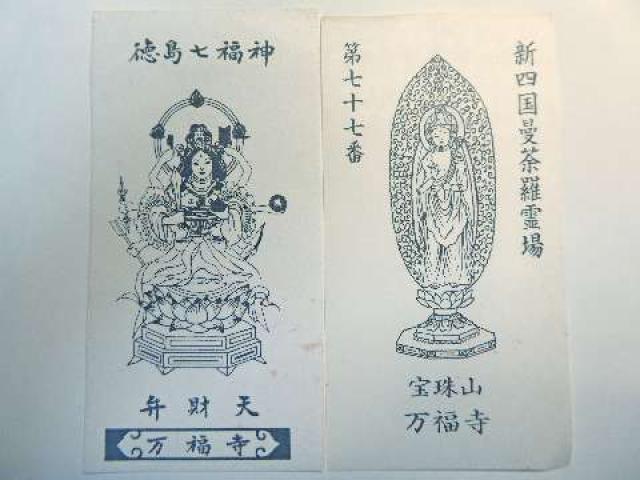 徳島七福神
弁財天
万福寺
新四国曼荼羅霊場
第七十七番
宝珠山
万福寺